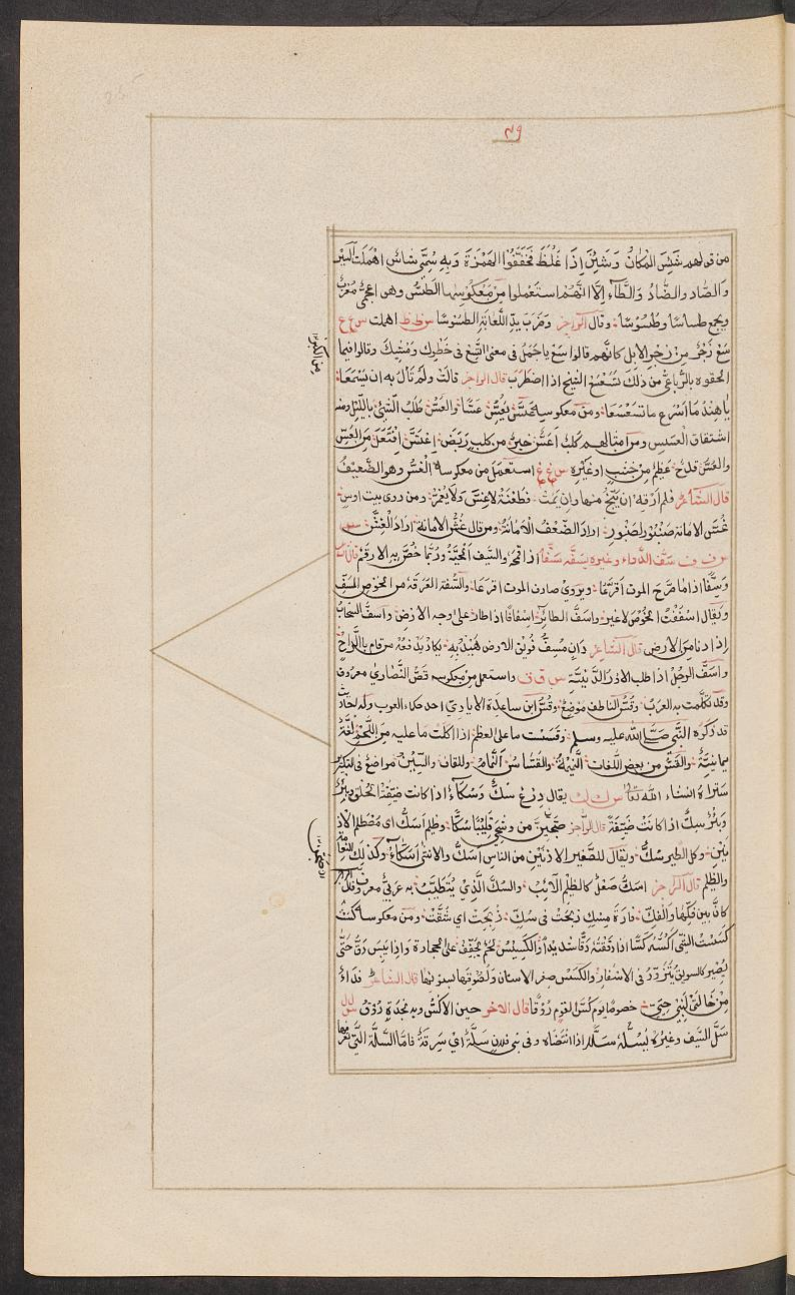 ٤٩
من قولهم شَئِسَ المكانُ وَشَئِزَ اِذَا غَلُظَ فخَفَّفُوا الهَمْزَةَ وَبِهِ سُمِّيَ شاس اهْمِلَت السّين
وَالصّاد والضّادُ وَالطَّاءُ اِلّا انّهُم استعملوا مِنْ مَعْكُوسها الطَسُّ وهى اعجمىٌّ مُعَرّب
ويجمع طساسًا وطُسُوسًا وقال الراجز وضَربَ يدِ اللعّابَةِ الطسُوسَا س ظ ظ اهملت س ع ع
سَعْ زَجْرٌ مِنْ زجر الابل كانّهم قالوا سَعْ ياجَمَلُ فى معنى اتّسِعْ فى خَطْوِك ومَشْيِكَ وقالوا فيما
الحقوه بالرّباعى من ذلك تَسَعْسَعَ الشيخ اذا اضطَربَ قال الراجز قالَتْ ولَمْ تَأْلُ بهِ ان يَسْمَعَا
يا هِندُ مَا اَسْرَعَ ما تسَعْسَعَا ومن معكوسه عَسَّ يَعُسُّ عَسًّا والعَسُّ طَلَبُ الشَئِ بالليل ومنه
اشتقاق العَسَسِ ومن امثالهم كلبٌ اعتسَّ خيرٌ من كلبٍ رَبَضَ اِعْتَسَّ اِفْتَعَلَ مِنَ العَسّ
والعُسُّ قدَحٌ عَظِيمٌ مِنْ خَشَبٍ اوغَيْرِه س غ غ استعمل من معكوسه الغُسُّ وهو الضَّعِيفُ
قال الشّاعر فلم اَرْقه اِن يَنْجُ منها وان يَمُتْ فطَعْنَةُ لاغُسٍّ ولا بِمُغَمَّرِ ومن روى بيت اوس
غُسُّ الامانة صَنْبُوْرٌ لصَنبور اراد الضّعْف الاَمَانَةُ ومن قال غُشُّ الامانة ارادَ الغِشَّ
س ف ف سَفَّ الدَّواءَ وغيره يسَفُّه سَفًّا اذا قمحَهُ والسِّف الحيَّةُ ورُبّما خُصَّ به الارقَمُ قال الشاعر
وَسِفًّا اذا ما صَرَّحَ الموت اَقْرَعَا ويروي صادن الموت اقرعَا والسُّفّة العَرَقَة من الخوص المُسَفّ
ويقال اسفَفْتُ الخُوصَ لاغير واسَفَّ الطائِرُ اِسْفافًا اذا طار على وجه الارض واسفَّ السَّحابُ
اِذا دنا من الارض قال الشاعر دَانٍ مُسِفٌّ فُوَيْق الارض هَيْدَبُهُ يكادُ يَدْفَعُهُ من قام بالرّاحِ
واسَفَّ الرجُلُ اذا طلب الامور الدَّنِيَّةِ س ق ق واستعمل من معكوسه قسُّ النَّصارى معروف
وقد تكلّمت به العرَبُ وقُسُّ الناطف موضِعٌ وقُسُّ ابن ساعدَةَ الايادى احد حكماء العرب وله احاديث
قد ذكره النّبي صَلَّى الله عليه وسلم وقسَسْت ما على العظم اذا اكلت ما عليه مِنَ اللّحْمِ لغَةٌ
يمانيَّةٌ والقَسُّ من بعض اللغات النَّمِيْمَةُ والقَسَّاسُ النَّمام وللقاف والسِّيْن مواضع فى التكرير
ستراهُ انشاء الله تعالى س ك ك يقال دِرْع سَكٌّ وسَكّاءُ اذا كانت ضَيّقة الحَلَقِ وبِئرٌ
وبئرٌ سُكٌّ اذا كانَتْ ضَيِّقَةً قال الرّاجز صَبَّحْنَ من وشْحَى قَلِيْبًا سُكًّا وظليم اسَكُّ اى مُصْطلم الاذ
نَيْنِ وكل الطير سُكٌّ ويقال للصّغير الاذنين من الناس اَسَكُّ والانثى سَكّاءُ وكذلك النعامة
والظليم قال الراجز اسَكُّ صَعْلٌ كالظليم الآيِبُ والسُّكُّ الَّذِي يُتَطَيَّبُ به عربىٌّ معروف قال الراجز
كانَّ بين فَكِّها والفَكِّ فارَةَ مِسْكٍ ذبِحَتْ فى سُكِّ ذُبِحَتْ اي شُقَّتْ ومن معكوسه كَسَسْتُ
كَسَسْتُ الشئَ اَكُسُّهُ كَسًّا اذا دَقَقْتَهُ دقًّا شديدًا والكَسِيْسُ لحم يُجَفّفُ على الحجارة واذا يَبِسَ دقّ حَتّى
يَصِيرَ كالسويق يُتَزَوّدُ فى الاسْفار والكَسَس صغر الاسنان ولُصُوقها بسنوخها قال الشاعر فداءٌ
مِنْ خالَتى لبَنِى حيىٍّ خصوصًا يوم كُسُّ القوم رُوْقُ قال الاخر حين الاكسُّ وبه نجدَةٍ رُوْقُ س ل ل
سَلَّ السَّيف وغيرَه يَسُلُّهُ سَلًّا اذا انتضَاه وفى بنى فلان سَلَّةٌ اي سَرِقَةٌ فامّا السَّلّة الَّتى تعرفها